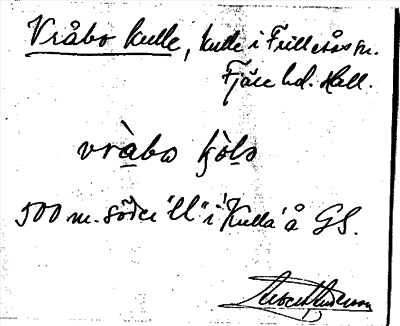 Vråbo kulle, kulle i Frillesås sn.
Fjäre hd. Hall.
vràbo
500 m. söder "ll" i 'Kulla' å GS.